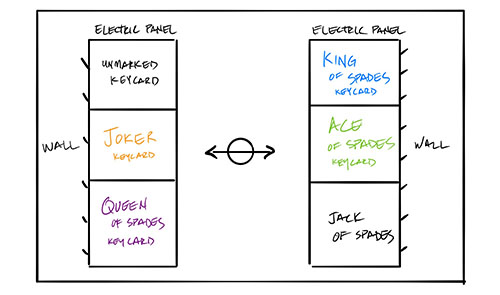 ELECTRIC PANEL
UNMARKED
KEYCARD
JOKER
KEYCARD
QUEEN
OF SPADES
KEYCARD
WALL
ELECTRIC PANEL
KING
OF SPADES
KEYCARD
ACE
OF SPADES
KEYCARD
JACK
OF SPADES
WALL